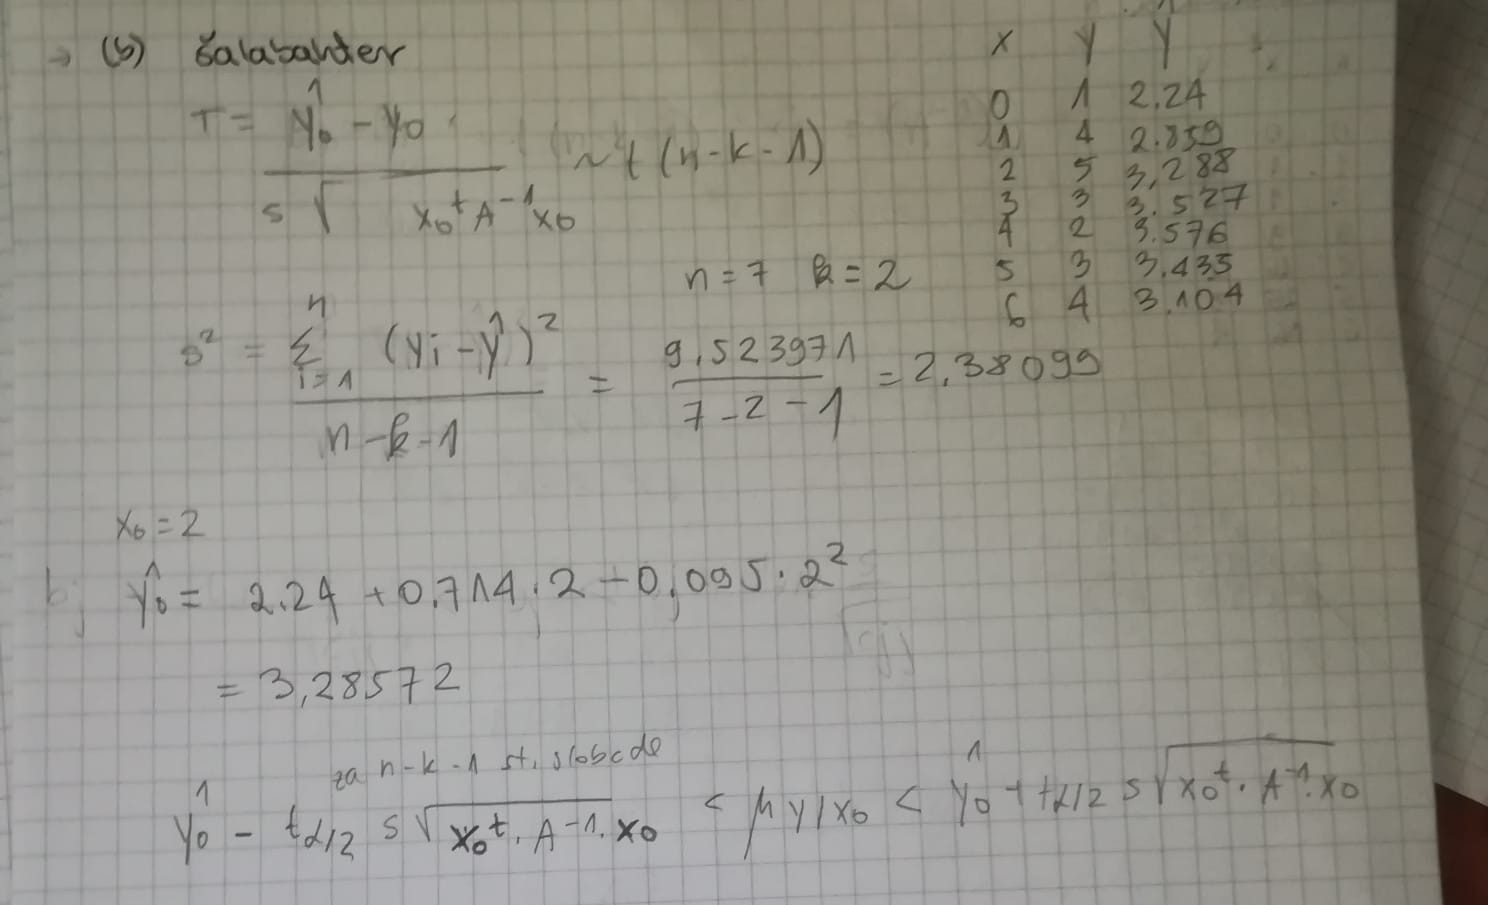 → (b) šalabahter
T = ŷ0 - y0 / s √ x0^t A^-1 x0 ~ t (n-k-1)
x y ŷ
0 1 2.24
1 4 2.859
2 5 3,288
3 3 3.527
4 2 3.576
5 3 3.435
6 4 3.104
n = 7 k = 2
s² = Σ i=1 n (yi - ŷ)² / n-k-1 = 9.523971 / 7-2-1 = 2.38099
x0 = 2
ŷ0 = 2.24 + 0,714 · 2 - 0,095 · 2²
= 3,28572
za n-k-1 st. slobode
ŷ0 - tα/2 s √ x0^t · A^-1 · x0 < μ y/x0 < ŷ0 + tα/2 s √ x0^t · A^-1 · x0